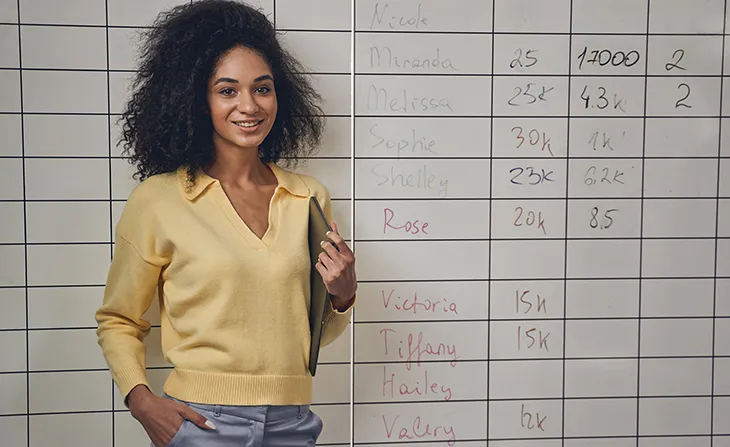 Nicole
Miranda 25 17000 2
Melissa 25k 4.3k 2
Sophie 30k 1k
Shelley 23k 6,2k
Rose 20k 8.5
Victoria 15k
Tiffany 15k
Hailey
Valery 12k